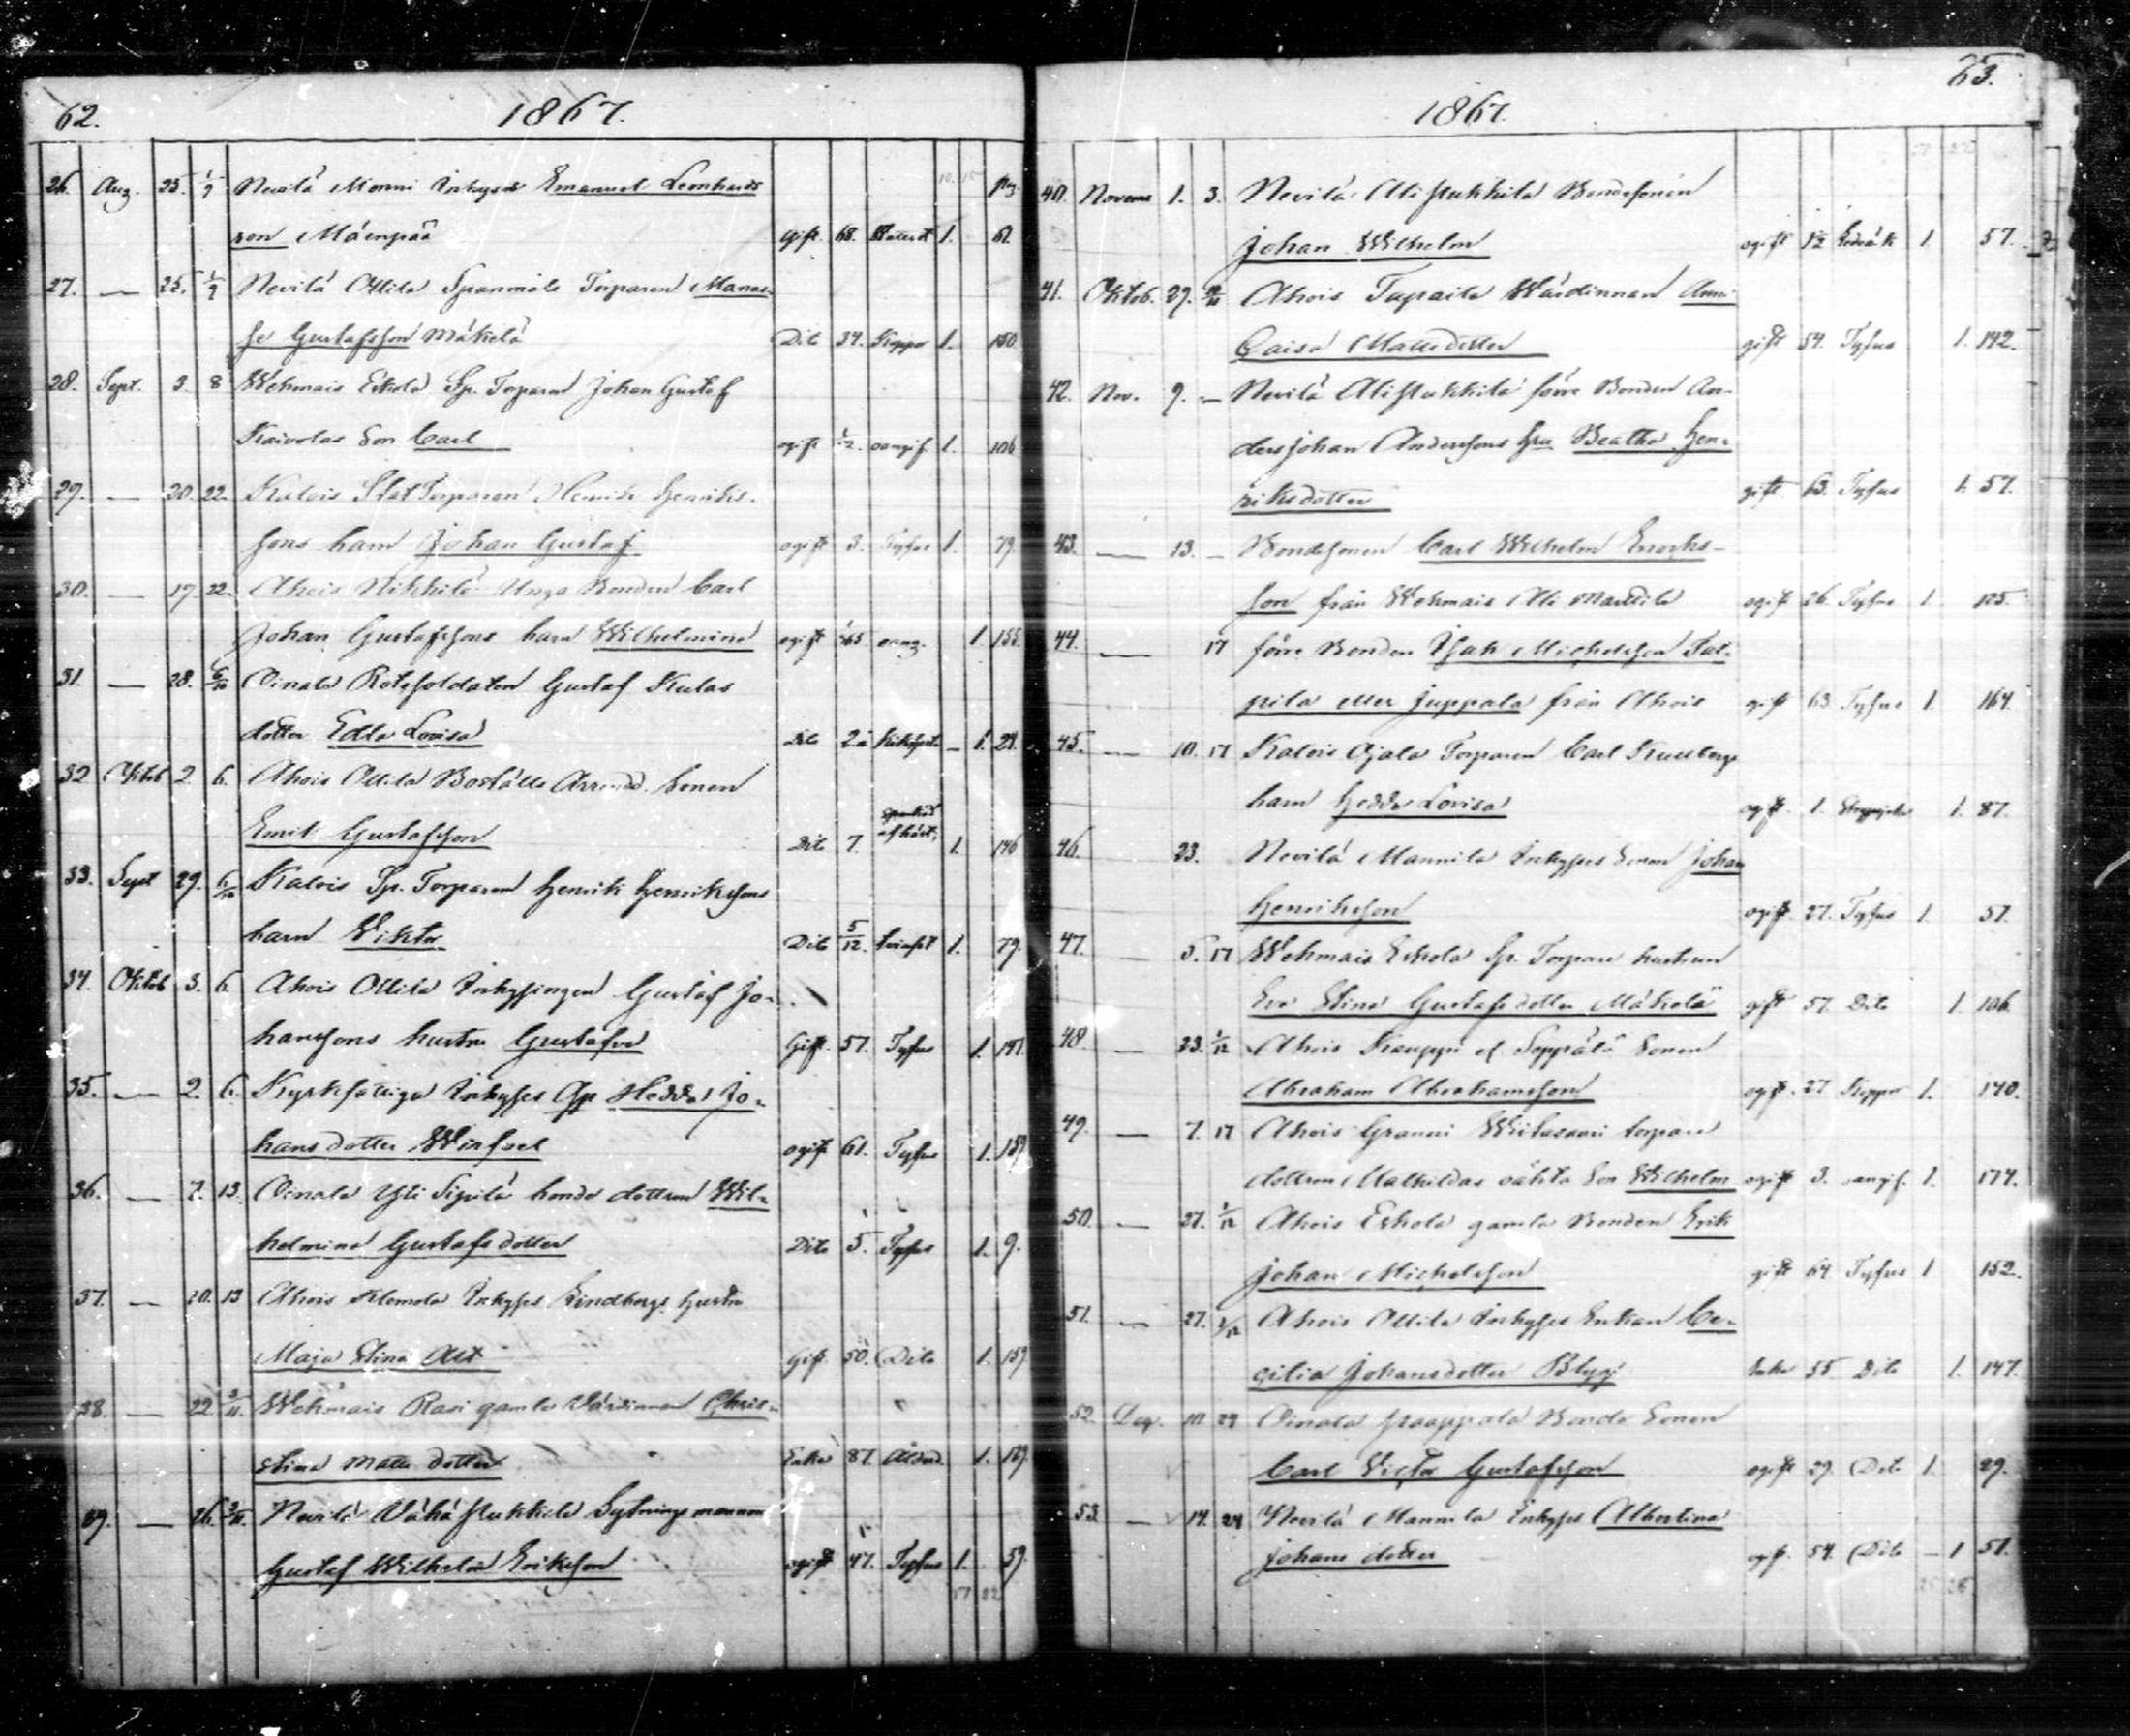 62.
1867.
26. Aug. 25. 1/9 Nevilä Monni Inhyses Emanuel Leonhards
son Mäenpää Gift. 68. 1. 61.
27. — 25. 1/9 Nevilä Ollila Spanmåls Torparen Manas-
se Gustafsson Mäkelä Dito 34. Koppor 1. 150
28. Sept. 3. 8 Wehmais Eskola Sp. Torparen Johan Gustaf
Kaivolas Son Carl ogift 1/2. oangif. 1. 106
29. — 20. 22. Kalois Stat Torparen Henrik Henriks-
sons barn Johan Gustaf ogift 3. Tyfus 1. 79.
30. — 17 22. Ahois Nikkilä Unga Bonden Carl
Johan Gustafssons barn Wilhelmina ogift oang. 1. 155.
31. — 28. 6/10 Oinala Rotesoldaten Gustaf Kulas
dotter Edla Lovisa Dito 2 Kikhosta – 1. 21.
32 Oktob 2. 6. Ahois Ollila Boställs Arrend. Sonen
Emil Gustafsson Dito 7. 1. 146
33. Sept 29. 6/10 Kalois Sp. Torparen Henrik Henrikssons
barn Viktor Dito 5/12. 1. 79.
34. Oktob 3. 6. Ahois Ollila Inhysingen Gustaf Jo-
hanssons hustru Gustafva Gift. 57. Tyfus 1. 147.
35. — 2. 6. Kyrkfattiga Inhyses Hedda Jo-
hans dotter Wirfvel ogift 61. Tyfus 1. 159
36. — 7. 13. Oinala Yli Sipilä bonde dottren Wil-
helmina Gustafs dotter Dito 5. Tyfus 1. 9.
37. — 10. 13 Ahois Klemola Inhyses Lindbergs hustru
Maja Stina Gift. 50. Dito 1. 159
38. — 22 3/11. Wehmais Rasi gamla Värdinnan Chris-
stina Matts dotter Enka 87. Ålderd. 1. 129.
39. — 26. 3/11. Nevilä Vähä Stukkila Sytningsmannen
Gustaf Wilhelm Eriksson ogift 47. Tyfus 1. 59
17 22
63.
1867.
40. Novem 1. 3. Nevilä Ali Stukkila Bondesonen
Johan Wilhelm ogift 1/2 1. 57.
41. Oktob. 29. Ahois Tapaila Wärdinnan Anna
Caisa Mattsdotter gift 54. Tyfus 1. 142.
42. Nov. 9. – Nevilä Ali Stukkila förre Bonden An-
ders Johan Anderssons Hru Beatha Hen-
riksdotter gift 63. Tyfus 1. 57.
43. — 13. – Bondesonen Carl Wilhelm Enochs-
son från Wehmais Ali Marttila ogift 26. Tyfus 1. 125.
44. — 17 förre Bonden Isak Michelsson Tal-
pila eller Juppala från Ahois gift 63. Tyfus 1. 164.
45. — 10. 17 Kalois Ojala Torparen Carl Kullbergs
barn Hedda Lovisa ogift. 1. 1. 87.
46. 23. Nevilä Mannila Inhyses Sonen Johan
Henriksson ogift. 27. Tyfus 1. 51.
47. — 5. 17 Wehmais Eskola Sp. Torpare hustrun
Eva Stina Gustafs dotter Mäkelä gift 57. Dito 1. 106.
48. — 23. 1/12 Ahois Kauppi el. Seppälä Sonen
Abraham Abrahamsson ogift. 27 Koppor 1. 140.
49. — 7. 17 Ahois Granni Witasaari torpare
dottren Mathildas oäkta Son Wilhelm ogift 3. oangif. 1. 174.
50. — 27. 1/12 Ahois Eskola gamla Bonden Erik
Johan Michelsson gift 64 Tyfus 1 152.
51. — 27. 1/12 Ahois Ollila Inhyses Enkan Ce-
cilia Johansdotter Blyg Enka 55 Dito 1. 147.
52. Dec. 10 24 Oinala Bonde Sonen
Carl Victor Gustafsson ogift 29. Dito 1. 29.
53. — 14. 24 Nevilä Mannila Inhyses Albertina
Johans dotter ogft. 54. Dito – 1 51.